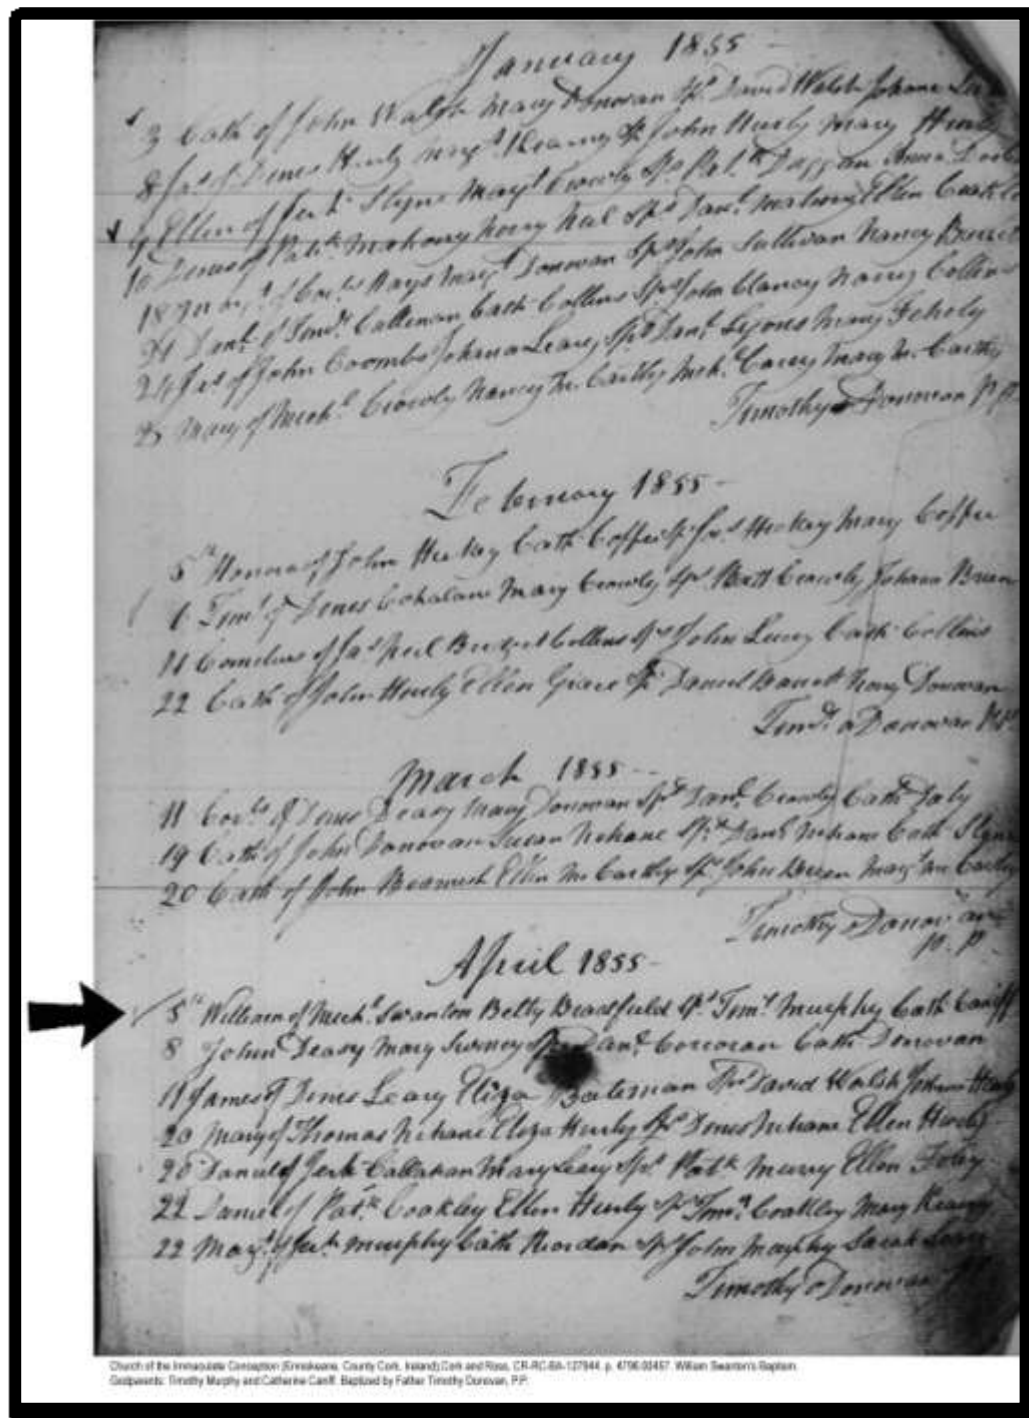 January 1855
3 Cath of John Walsh Mary Donovan Sprs David Walsh Johana
8 Jas of Denis Hurly Margt Kearny Sp John Hurly Mary Hurly
9 Ellen of Jerh Slyne Margt Crowly Sps Patk Duggan Anna
10 Denis of Patk Mahony Nory Neal Sprs Danl Mahony Ellen Coakley
18 Margt of Corls Hays Margt Donovan Sprs John Sullivan Nancy
21 Danl of Timy Callinan Cath Collins Sprs John Clancy Nancy Collins
24 Jas of John Coombs Johana Leary Sprs Danl Lyons Mary Fehely
25 Mary of Michl Crowly Nancy McCarthy Mich. Carey Mary McCarthy
Timothy O Donovan P.P.
February 1855
5th Honora of John Hickey Cath Coffee Sp Jas Hickey Mary Coffee
6 Timy of Denis Cohalane Mary Crowly Sprs Batt Crowly Johana Brien
11 Cornelius of Jas Neil Bridget Collins Sprs John Lucey Cath Collins
22 Cath of John Hurly Ellen Grace Sp Daniel Barrett Nory Donovan
Timy O Donovan P.P.
March 1855
11 Corls of Denis Deasy Mary Donovan Sprs Danl Crowly Cath Daly
19 Cath of John Donovan Susan Nehane Sprs Danl Nehane Cath Slyne
20 Cath of John Beamish Ellen McCarthy Sprs John Margt McCarthy
Timothy O Donovan
P.P.
April 1855
5th William of Michl Swanton Betty Bradfield Sprs Timy Murphy Cath Caniff
8 John Deasy Mary Swiney Sprs Danl Corcoran Cath Donovan
11 James of Denis Leary Eliza Bateman Sprs David Walsh Johana Hurly
20 Mary of Thomas Nehane Eliza Hurly Sps Denis Nehane Ellen Hurly
20 Daniel of Jerh Callahan Mary Leary Sprs Patk Murry Ellen Foley
22 Daniel of Patk Coakley Ellen Hurly Sp Timy Coakley Mary Kearny
22 Margt of Jerh Murphy Cath Riordan Sprs John Murphy Sarah Leary
Timothy O Donovan P.P.
Church of the Immaculate Conception (Enniskeane, County Cork, Ireland) Cork and Ross, CR-RC-BA-127944, p. 4796.00457. William Swanton's Baptism.
Godparents: Timothy Murphy and Catherine Caniff. Baptized by Father Timothy Donovan, P.P.